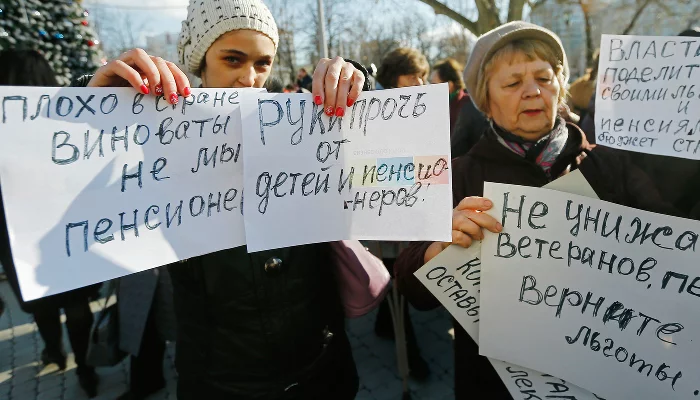 ПЛОХО В СТРАНЕ
ВИНОВАТЫ
НЕ МЫ
ПЕНСИОНЕ
РУКИ ПРОЧЬ
ОТ
ДЕТЕЙ И ПЕНСИО-
-НЕРОВ!
ВЛАСТ
ПОДЕЛИТ
СВОИМИ ЛЬ
И
ПЕНСИЯ
БЮДЖЕТ СТ
Не УНИЖА
ВЕТЕРАНОВ, ПЕ
ВЕРНИТЕ
ЛЬГОТЫ
ОСТАВЬ
ЛЕК